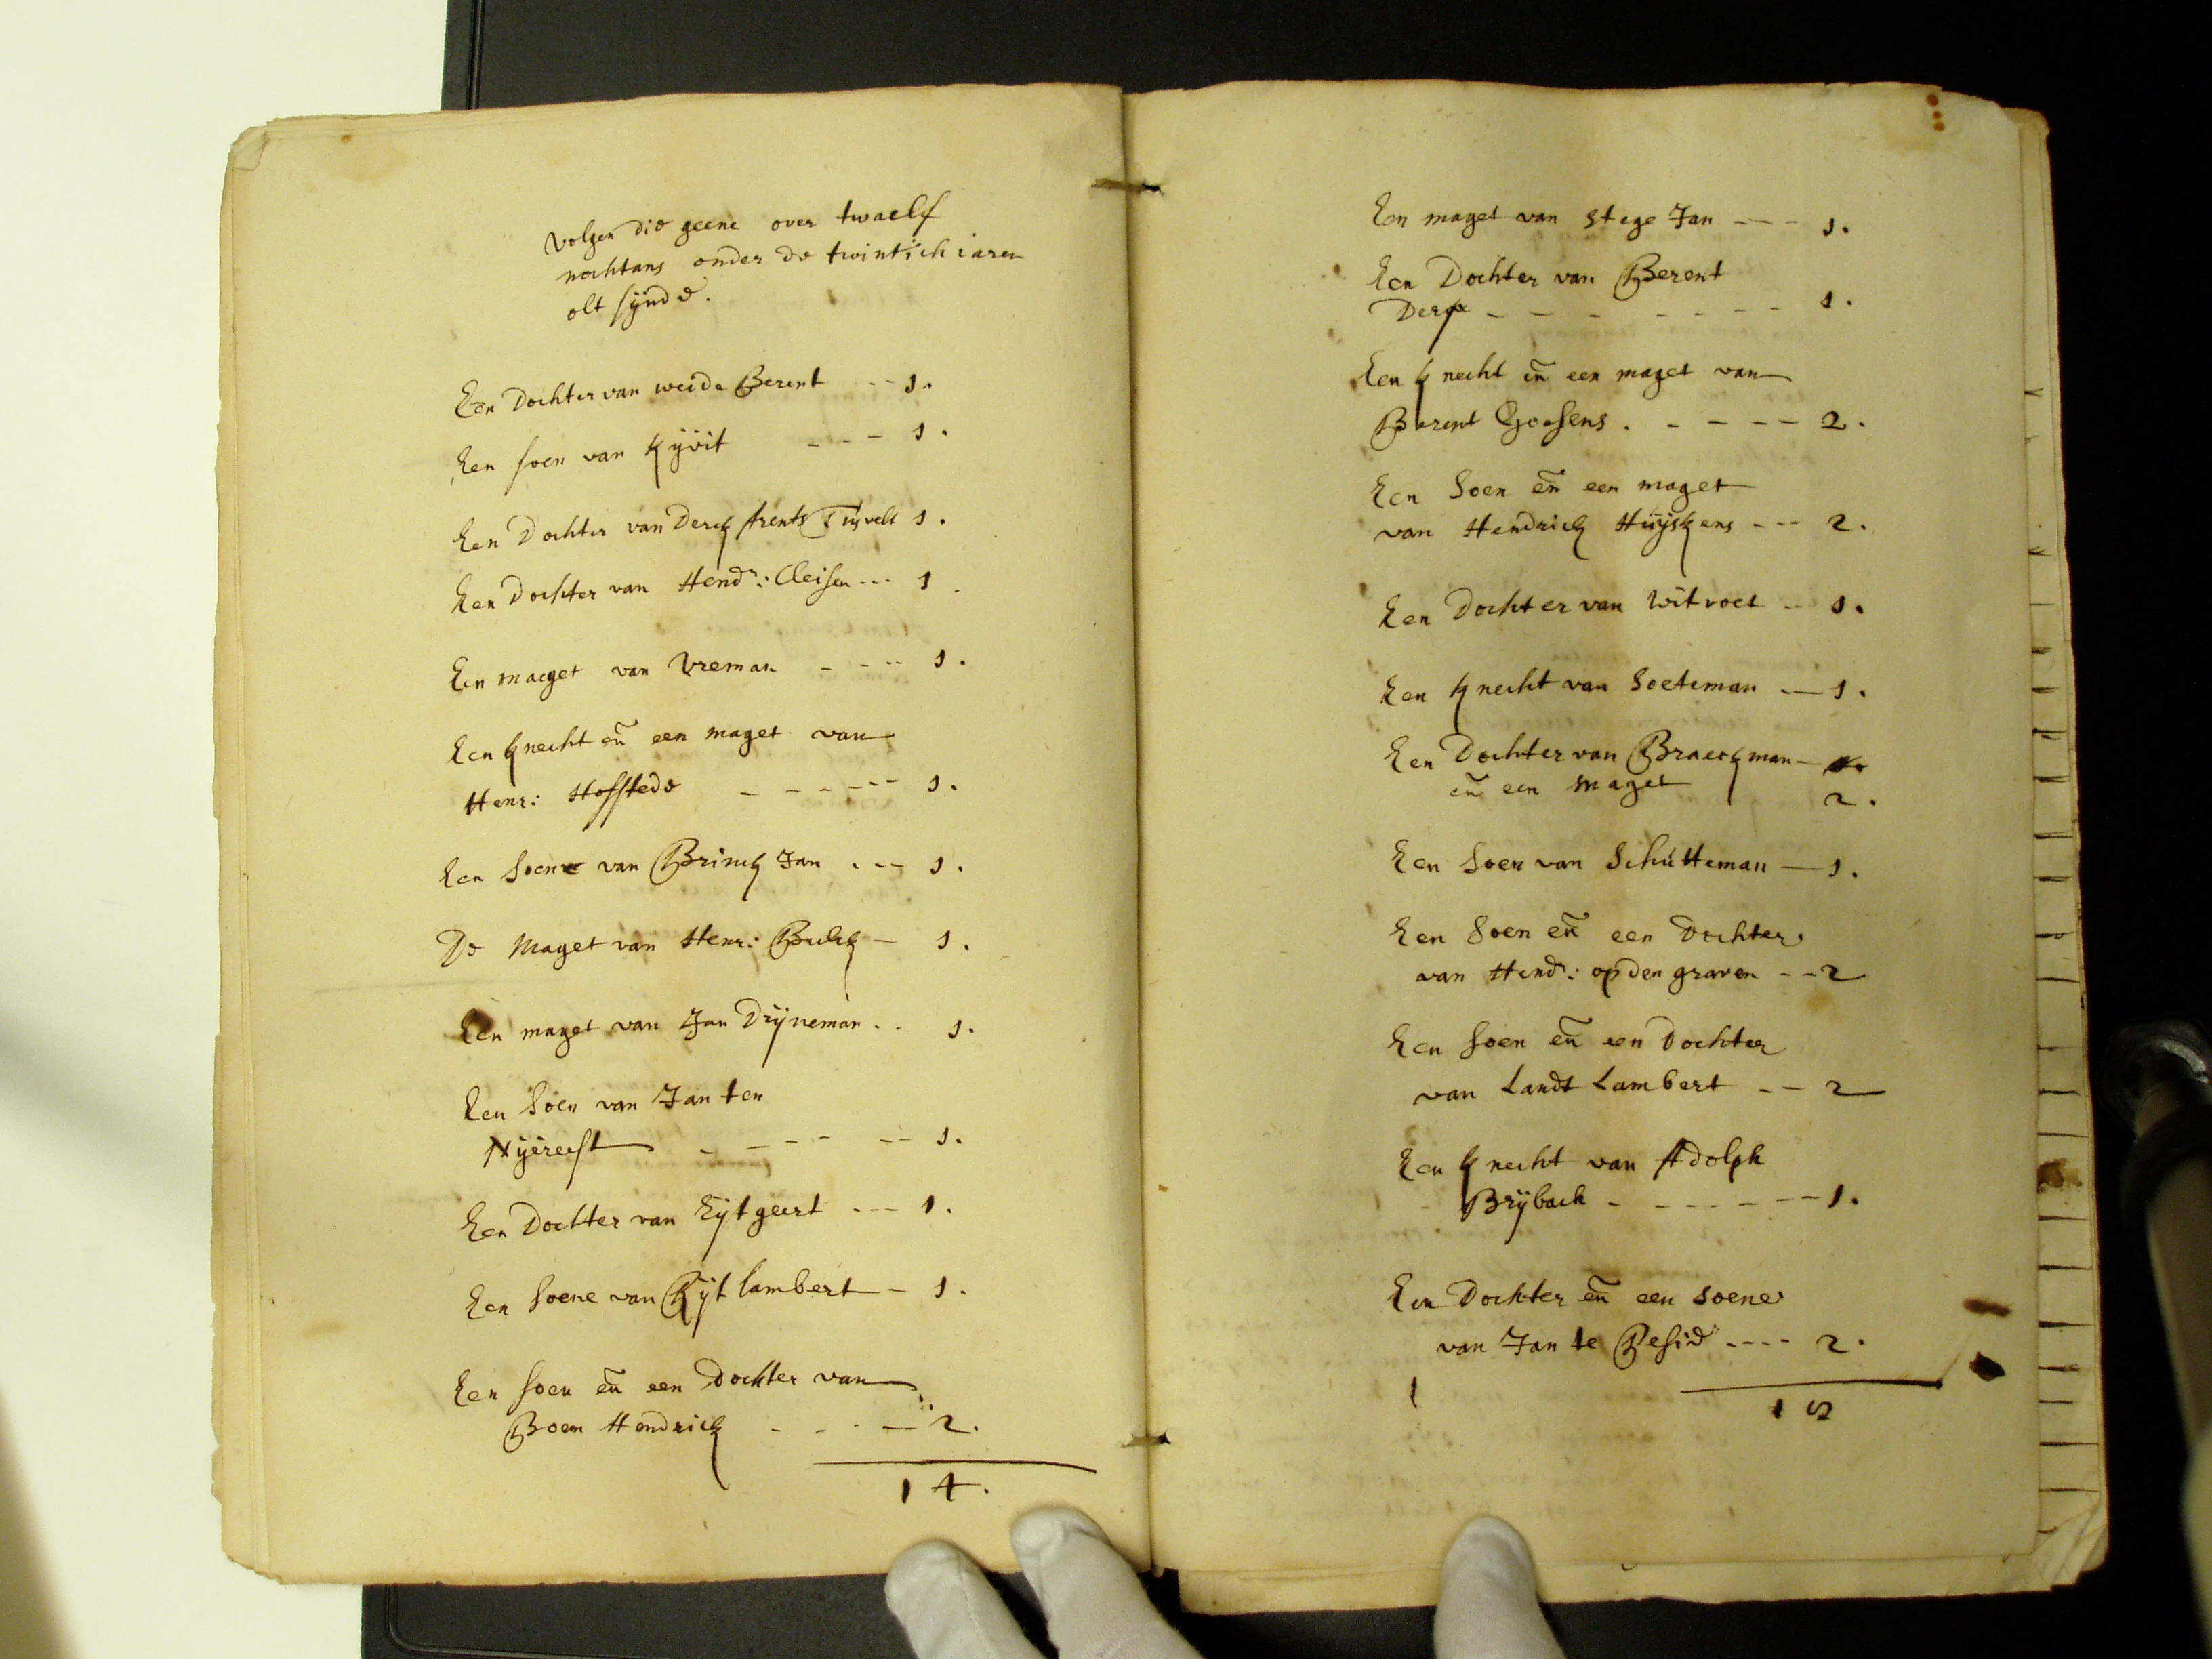 volgen die geene over twaelf
nochtans onder de twintich iaren
olt sÿnde.
Een Dochter van weide Berent -- 1.
Een soen van Kÿvit --- 1.
Een Dochter van Derck Arents Tijvelt 1.
Een Dochter van Hendr: Cleisen --- 1.
Een maeget van Vreman ---- 1.
Een Knecht eñ een maget van
Henr: Hofstede ------ 1.
Een Soene van Brinck Jan --- 1.
De Maget van Henr: - 1.
Een maget van Jan Drÿneman .. 1.
Een Soen van Jan ten
Nÿereest ------ 1.
Een Dochter van Eijtgeert --- 1.
Een Soene van Rÿt Lambert - 1.
Een soen eñ een Dochter van
Boem Hendrick ---- 2.
14.
Een maget van Stege Jan --- 1.
Een Dochter van Berent
------- 1.
Een Knecht eñ een maget van
Berent Goesens . ---- 2.
Een Soen eñ een maget
van Hendrick Huÿskens --- 2.
Een Dochter van Witvoet -- 1.
Een Knecht van Soeteman -- 1.
Een Dochter van Braeckman -
eñ een maget 2.
Een Soen van Schutteman - 1.
Een Soen eñ een Dochter
van Hendr: op den graven -- 2
Een soen eñ een Dochter
van Landt Lambert -- 2
Een Knecht van Adolph
Brÿbach ------ 1.
Een Dochter eñ een soene
van Jan te ---- 2.